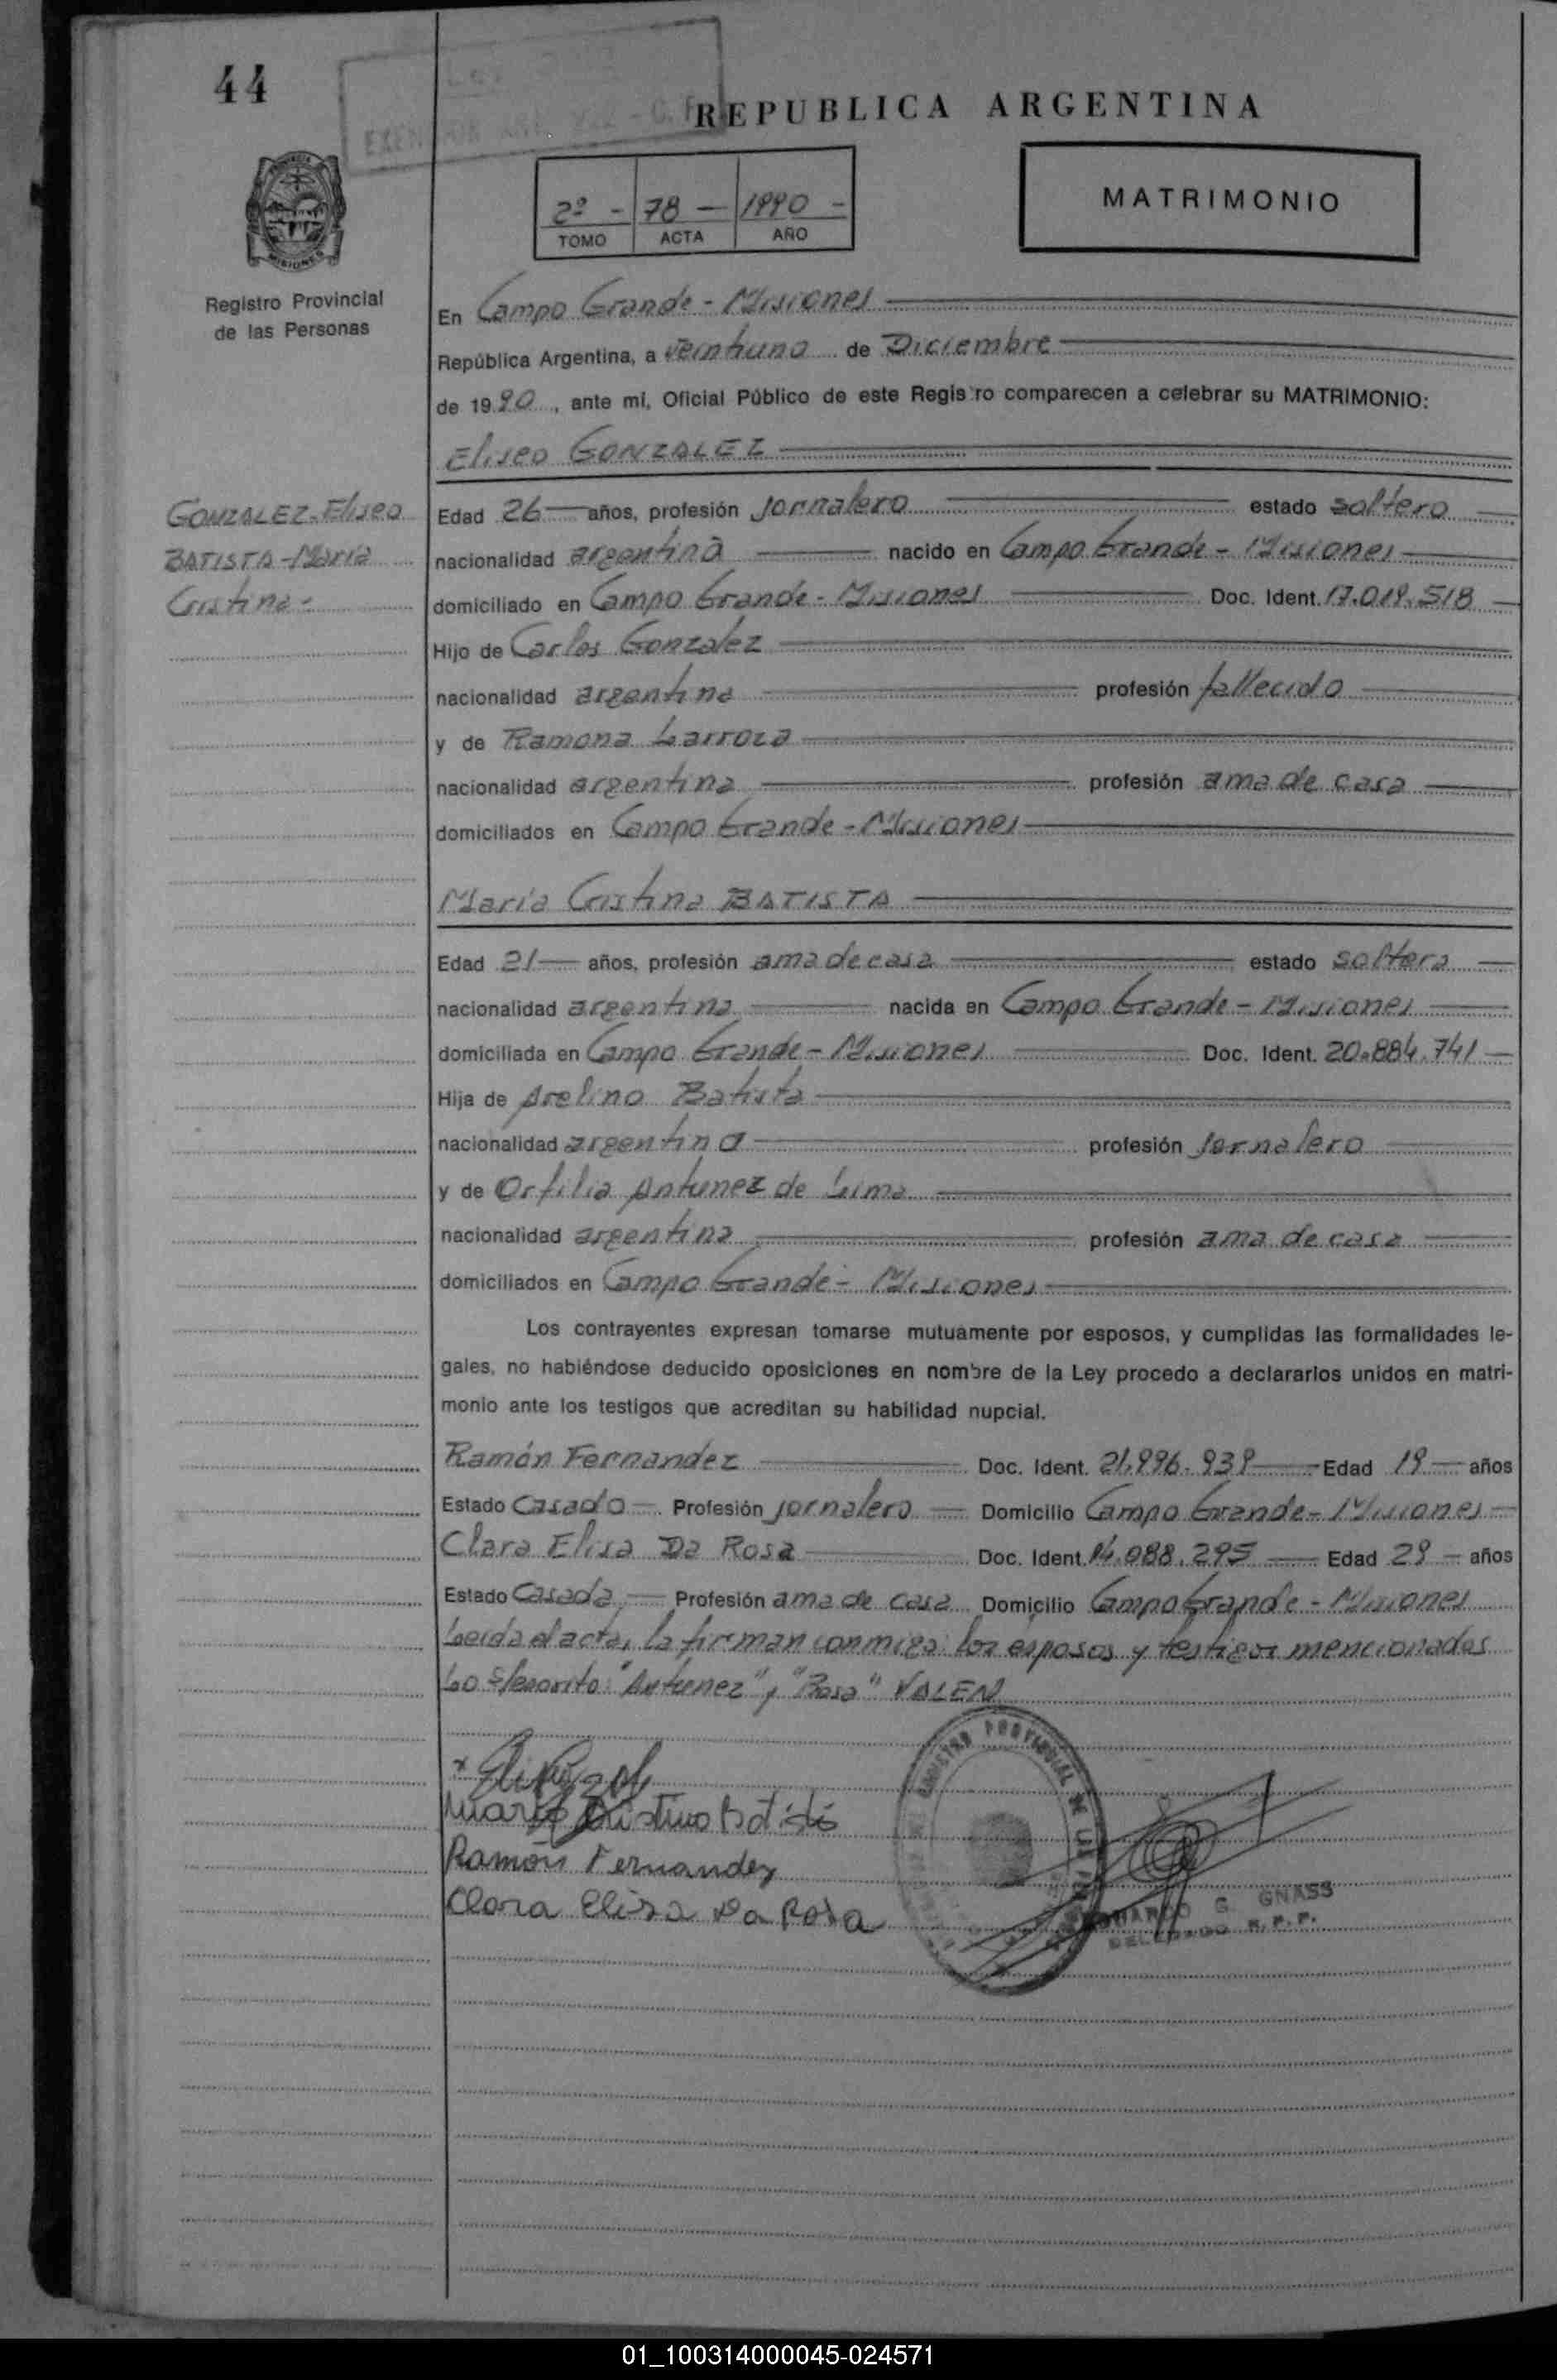 44
REPUBLICA ARGENTINA
2º - 78 - 1990 -
TOMO ACTA AÑO
MATRIMONIO
MISIONES
Registro Provincial
de las Personas
En Campo Grande - Misiones
República Argentina, a veintiuno de Diciembre
de 1990, ante mí, Oficial Público de este Registro comparecen a celebrar su MATRIMONIO:
Eliseo GONZALEZ
GONZALEZ-Eliseo
BATISTA-María
Cristina-
Edad 26 años, profesión Jornalero estado soltero
nacionalidad argentina nacido en Campo Grande - Misiones
domiciliado en Campo Grande - Misiones Doc. Ident. 17.019.518
Hijo de Carlos Gonzalez
nacionalidad argentina profesión fallecido
y de Ramona Larroza
nacionalidad argentina profesión ama de casa
domiciliados en Campo Grande - Misiones
María Cristina BATISTA
Edad 21 años, profesión ama de casa estado soltera
nacionalidad argentina nacida en Campo Grande - Misiones
domiciliada en Campo Grande - Misiones Doc. Ident. 20.884.741
Hija de Avelino Batista
nacionalidad argentina profesión Jornalero
y de Orfilia Antunez de Lima
nacionalidad argentina profesión ama de casa
domiciliados en Campo Grande - Misiones
Los contrayentes expresan tomarse mutuamente por esposos, y cumplidas las formalidades le-
gales, no habiéndose deducido oposiciones en nombre de la Ley procedo a declararlos unidos en matri-
monio ante los testigos que acreditan su habilidad nupcial.
Ramón Fernandez Doc. Ident. 21.996.939 Edad 19 años
Estado Casado Profesión jornalero Domicilio Campo Grande - Misiones
Clara Elisa Da Rosa Doc. Ident. 14.088.295 Edad 29 - años
Estado Casada, Profesión ama de casa Domicilio Campo Grande - Misiones
Leída el acta, la firman conmigo los esposos y testigos mencionados
Lo s/escrito: "Antunez" y "Rosa" VALEN
María Cristina Batista
Ramón Fernandez
Clara Elisa Da Rosa
REGISTRO PROVINCIAL DE LAS
G. GNASS
DELEGADO R.P.P.
01_100314000045-024571